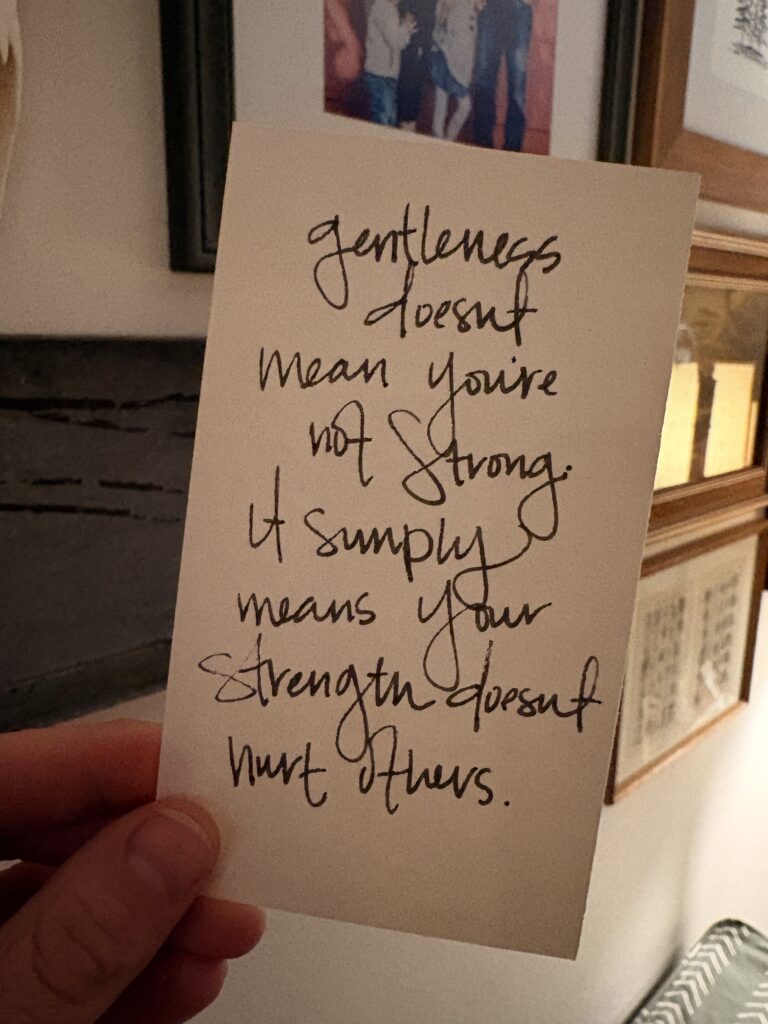 gentleness
doesnt
mean you're
not strong.
it simply
means your
strength doesnt
hurt others.